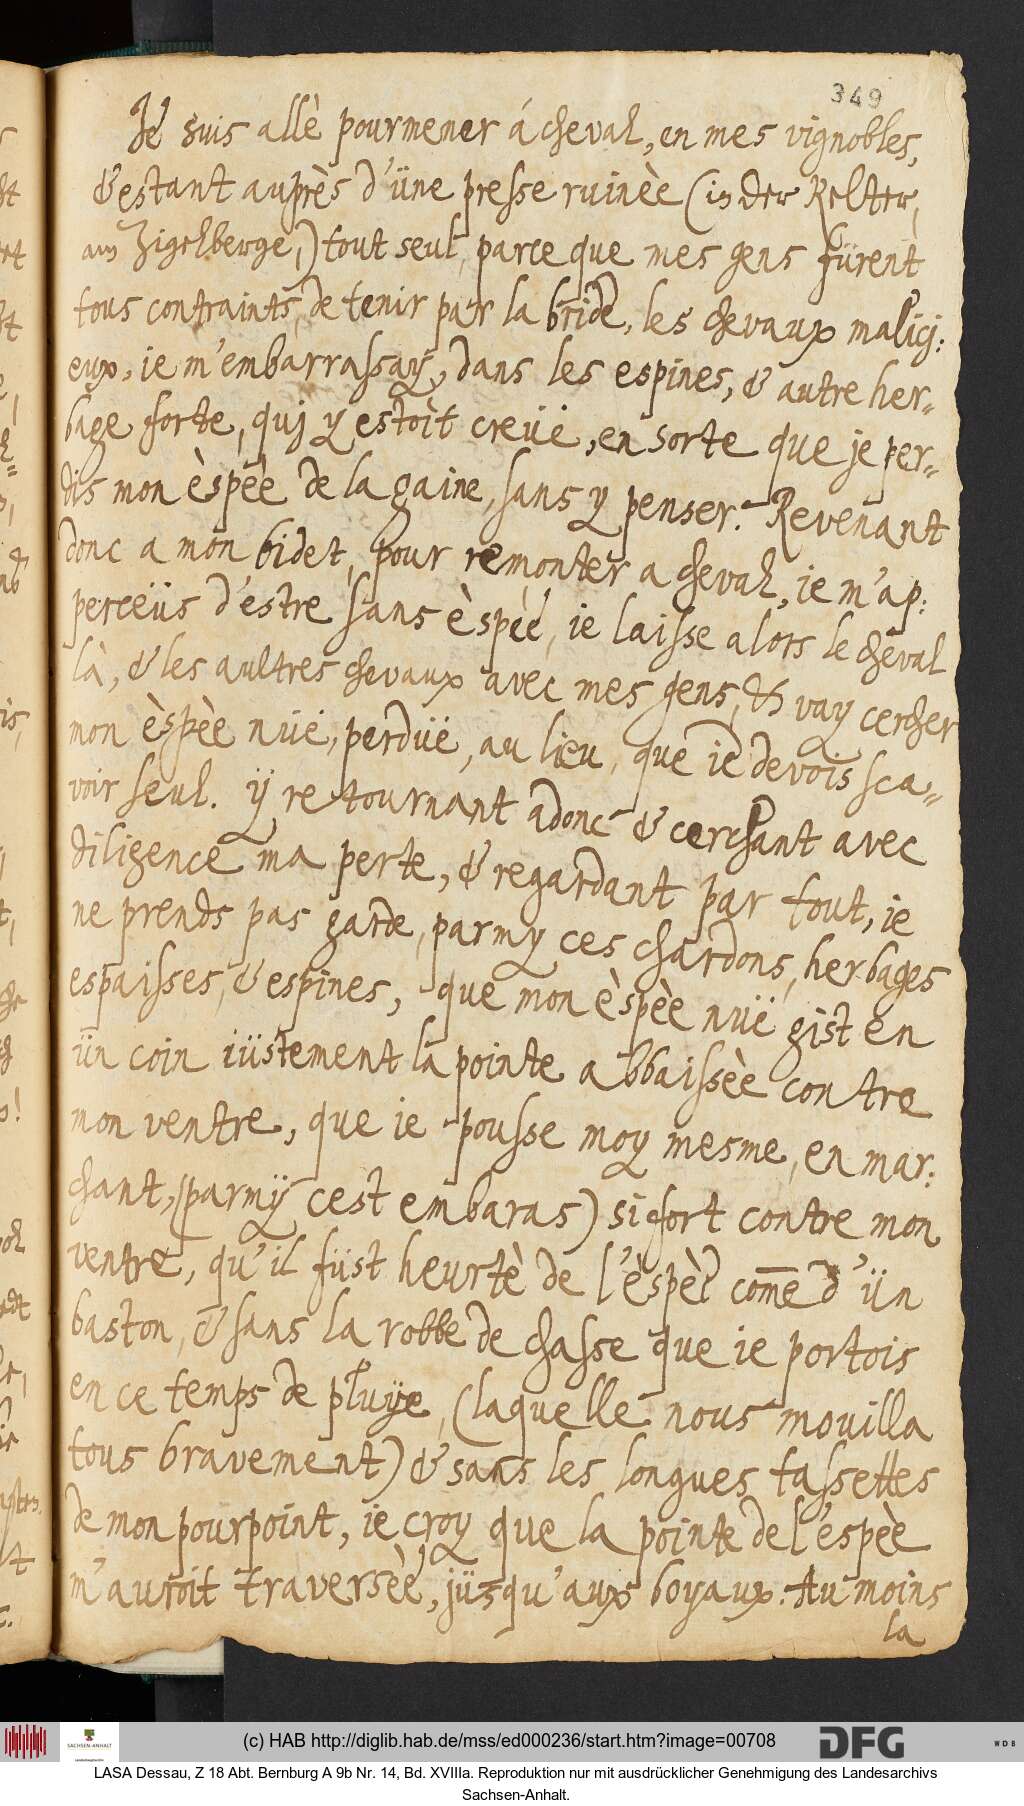 349
Je suis allè pourmener á cheval, en mes vignobles,
& estant auprès d'üne presse ruinèe (in der Kelter,
am Zigelberge,) tout seul, parce que mes gens fürent
tous contraints, de tenir par la bride, les chevaux malicj:
eux, ie m'embarrassay, dans les espines, & autre her-
bage forte, quj y estoit creüe, en sorte que je per-
dis mon èspèè de la gaine, sans y penser. Revenant
donc a mon bidet, pour remonter a cheval, ie m'ap:
perceüs d'estre sans èspèè, ie laisse alors le cheval
là, & les aultres chevaux avec mes gens, & vay cercher
mon èspèe nüe, perdüe, au lieu, que ie devois sca-
voir seul. ÿ retournant adonc & cerchant avec
diligence ma perte, & regardant par tout, ie
ne prends pas garde, parmy ces chardons, herbages
espaisses, & espines, que mon èspèe nüe gist en
ün coin iüstement la pointe abbaissèe contre
mon ventre, que ie pousse moy mesme, en mar:
chant, (parmÿ cest embaras) si fort contre mon
ventre, qu'il füst heurtè de l'èspèe com̄e d'ün
baston, & sans la robbe de chasse que ie portois
en ce temps de pluÿe, (laquelle nous mouilla
tous bravement) & sans les longues tassettes
de mon pourpoint, ie croy que la pointe de l'espèe
m'auroit traversèè, jüsqu'aux boyaux. Au moins
la
(c) HAB http://diglib.hab.de/mss/ed000236/start.htm?image=00708
SACHSEN-ANHALT
DFG
WDB
LASA Dessau, Z 18 Abt. Bernburg A 9b Nr. 14, Bd. XVIIIa. Reproduktion nur mit ausdrücklicher Genehmigung des Landesarchivs
Sachsen-Anhalt.